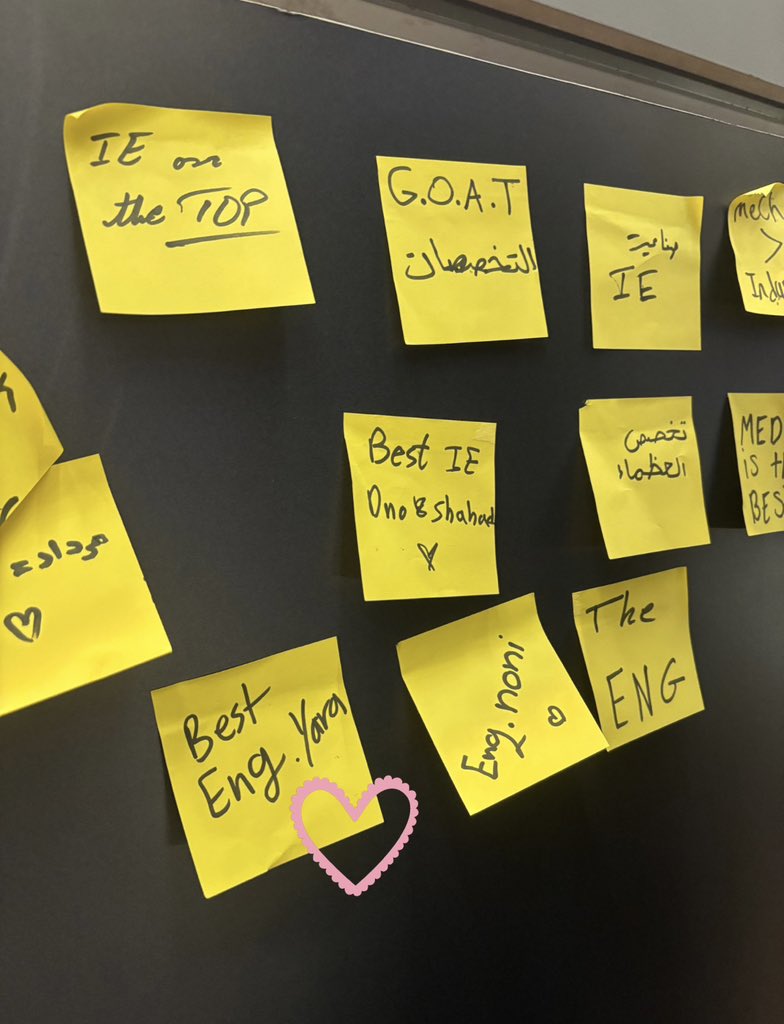 IE on
the TOP
G.O.A.T
التخصصات
صناعية
IE
Mech
>
Indu
Best IE
Ono & shahad
تخصص
العظماء
MED
IS th
BES
Best
Eng. Yara
Eng. noni
The
ENG